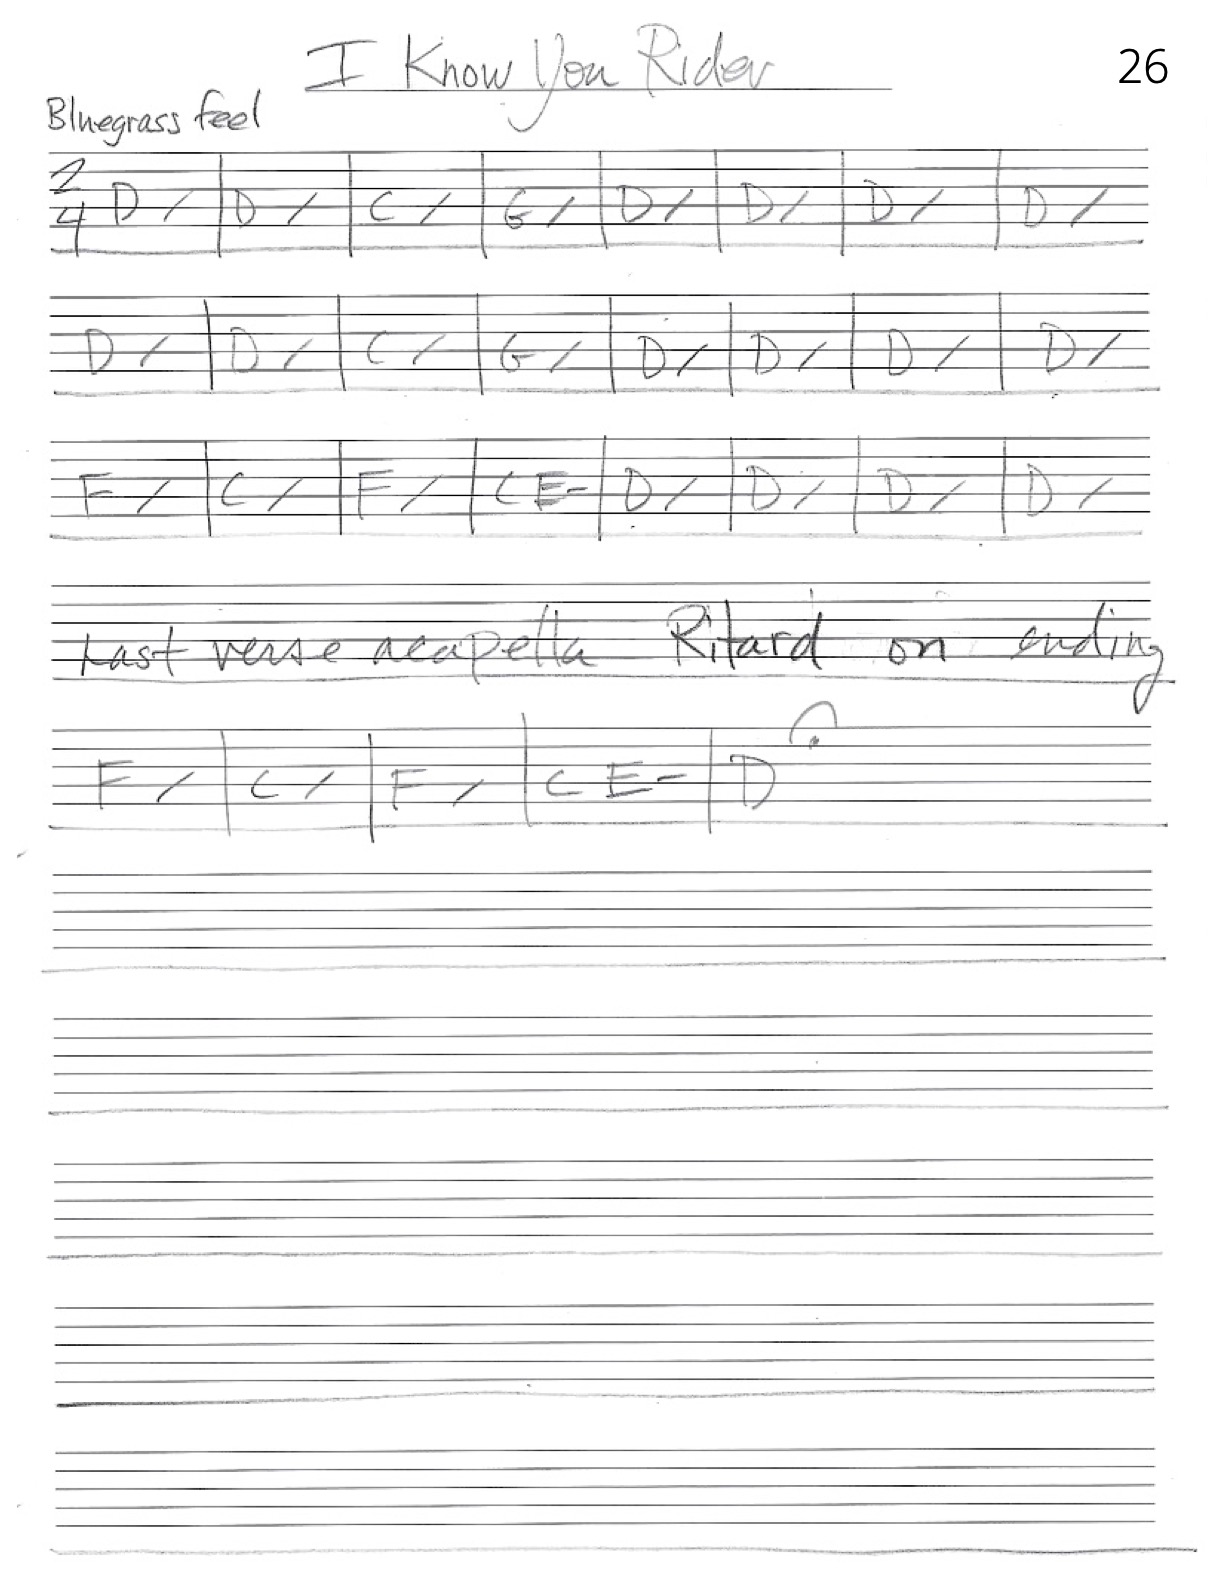 I Know You Rider
26
Bluegrass feel
2/4 D / | D / | C / | G / | D / | D / | D / | D /
D / | D / | C / | G / | D / | D / | D / | D /
F / | C / | F / | C E- | D / | D / | D / | D /
Last verse acapella Ritard on ending
F / | C / | F / | C E- | D